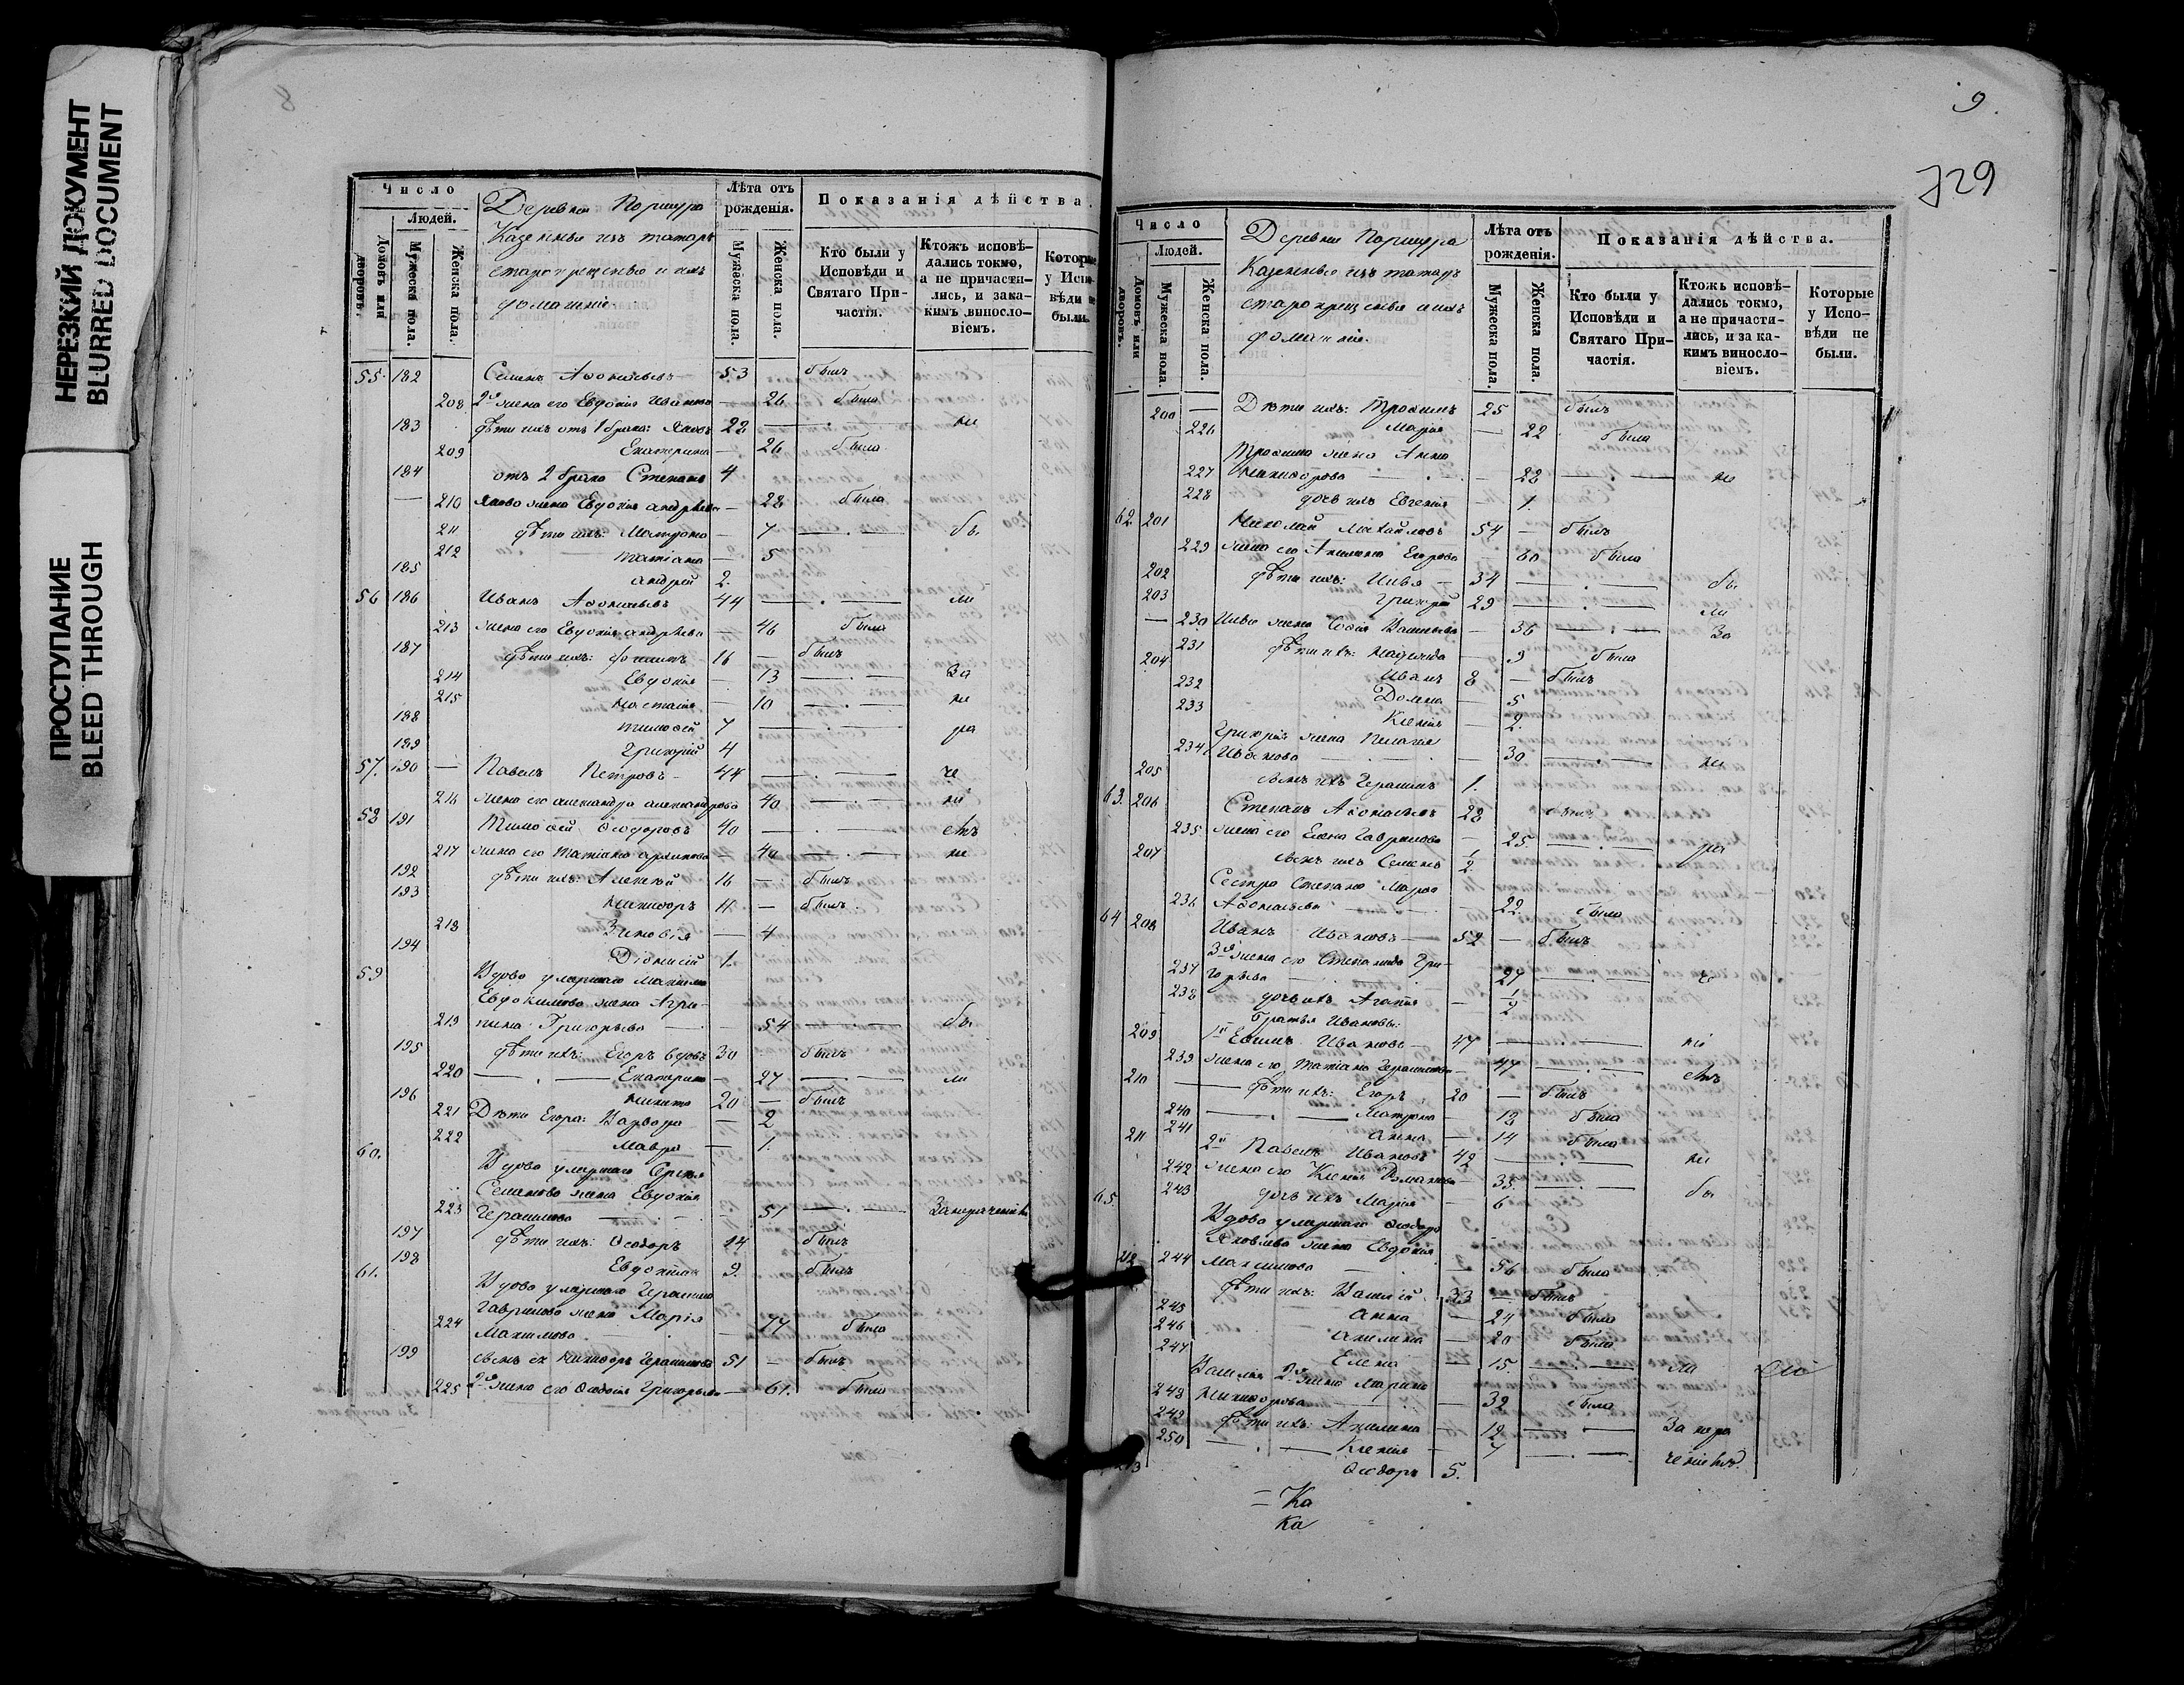 НЕРЕЗКИЙ ДОКУМЕНТ
BLURRED DOCUMENT
ПРОСТУПАНИЕ
BLEED THROUGH
8
Число
Людей.
Домовъ или дворовъ.
Мужеска пола.
Женска пола.
Деревня Поршура
Казенные изъ татаръ
старокрещеные и ихъ
домашніе.
Лѣта отъ рожденія.
Мужеска пола.
Женска пола.
Показанія дѣйства.
Кто были у Исповѣди и Святаго Причастія.
Ктожъ исповѣдались токмо, а не причастились, и закакимъ винословіемъ.
Которые у Исповѣди не были.
55. 182 Семенъ Аѳонасьевъ 53 былъ
208 2я жена его Евдокія Иванова — 26 была
183 дѣти ихъ отъ 1 брака: Яковъ 22 — не
209 Екатерина — 26 была
184 отъ 2 брака Степанъ 4
— 210 Якова жена Евдокія Андрѣева — 28 была
211 дѣти ихъ: Матрона — 7 — бы
212 Татіана — 5
185 Андрей 2.
56 186 Иванъ Аѳонасьевъ 44 — ли
213 жена его Евдокія Андрѣева — 46 была
187 дѣти ихъ: 16 — былъ
214 Евдокія — 13 — За
215 Настасія — 10 — не
188 Тимоѳей 7 — ра
189 Григорій 4
57. 190 — Павелъ Петровъ 44 — че
216 жена его Александра Александрова 40 — ні
58 191 Тимоѳей Ѳеодоровъ 40 — емъ
217 жена его Татіана — 40 — не
192 дѣти ихъ: Алексѣй 16 — былъ
193 Никифоръ 11 — былъ
218 Зиновія — 4
194 Діонисій 1.
59 Вдова умершаго Максима
Евдокимова жена Агри-
219 пина Григорьева — 54 — бы
195 дѣти ихъ: Егоръ вдовъ 30 былъ
220 Екатерина — 27 — ли
196 Никита 20 — былъ
221 Дѣти Егора: Варвара — 2
222 Мавра — 1.
60. Вдова умершаго Сергѣя
Семенова жена Евдокія
223 Герасимова — 51 — За нераченіемъ
197 дѣти ихъ: Ѳеодоръ 14 былъ
198 Евдокимъ 9. былъ
61. Вдова умершаго Герасима
Гаврилова жена Марія
224 Максимова — 77 была
199 сынъ ея Никифоръ Герасимовъ 51 — былъ
225 2я жена его Ѳеодосія Григорьева — 61. была
9.
729
Число
Людей.
Домовъ или дворовъ.
Мужеска пола.
Женска пола.
Деревня Поршура
Казенные изъ татаръ
старокрещеные и ихъ
домашніе.
Лѣта отъ рожденія.
Мужеска пола.
Женска пола.
Показанія дѣйства.
Кто были у Исповѣди и Святаго Причастія.
Ктожъ исповѣдались токмо, а не причастились, и за какимъ винословіемъ.
Которые у Исповѣди не были.
200 — Дѣти ихъ: Трофимъ 25 былъ
226 Марія — 22 была
Трофима жена Анна
227 Никифорова — 22 — не
228 дочь ихъ Евгенія — 1.
62. 201 Николай Михайловъ 54 — былъ
229 жена его Акилина Егорова 60 была
202 дѣти ихъ: Илья — 34 — бы
203 Григорій 29 — ли
— 230 Ильи жена Софія Васильева — 36 — За
231 дѣти ихъ: Надежда — 9 была
204 Иванъ 8 — былъ
232 Домна — 5
233 Ксенія — 2.
Григорія жена Пелагія
234 Иванова — 30 — не
205 сынъ ихъ Герасимъ 1.
63. 206 Степанъ Аѳонасьевъ 28 былъ
235 жена его Елена Гаврилова — 25 — ра
207 сынъ ихъ Семенъ 1/2
Сестра Степана Марѳа
236 Аѳонасьева — 22. была
64 208 Иванъ Ивановъ — 52 — былъ
3я жена его Степанида Гри-
237 горьева — 27 — че
238 дочь ихъ Агапія — 1/2
Братья Ивановы:
209 1й Ефимъ Ивановъ 47 — ні
239 жена его Татіана Герасимова — 47 — емъ
210 дѣти ихъ: Егоръ 20 — былъ
240 Матрона — 18 была
241 Анна — 14 была
211 2й Павелъ Ивановъ 42 — не
242 жена его Ксенія Романова — 35 — бы
243 дочь ихъ Марія — 6
65. Вдова умершаго Ѳеодора
Яковлева жена Евдокія
244 Максимова — 56 была
212 дѣти ихъ: Василій 33 — былъ
245 Анна — 24 была
246 Акилина — 20 была
247 Елена — 15. — ли
Василья 2я жена Марина
248 Никифорова — 32 была
249 дѣти ихъ: Акилина — 12 — За нера
250 Ксенія — 7 — ченіемъ.
213 Ѳеодоръ 5.
= Ка
Ка